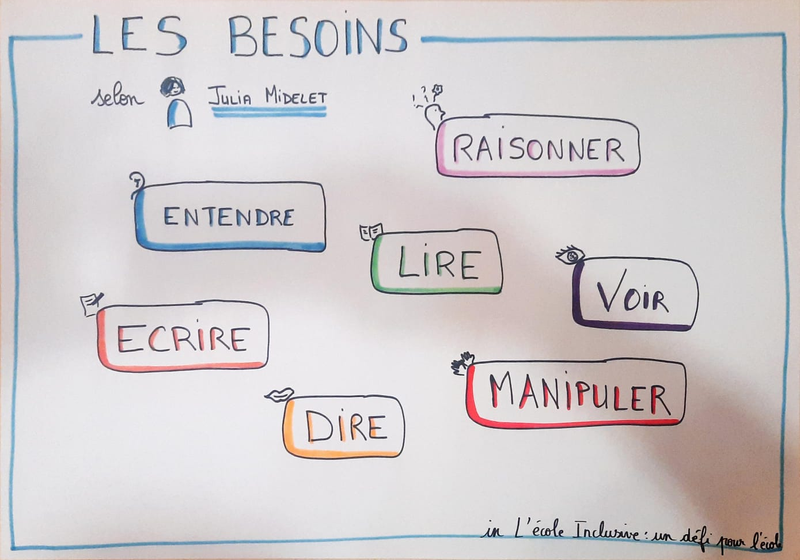 LES BESOINS
selon JULIA MIDELET
RAISONNER
ENTENDRE
LIRE
VOIR
ECRIRE
MANIPULER
DIRE
in L'école Inclusive : un défi pour l'école